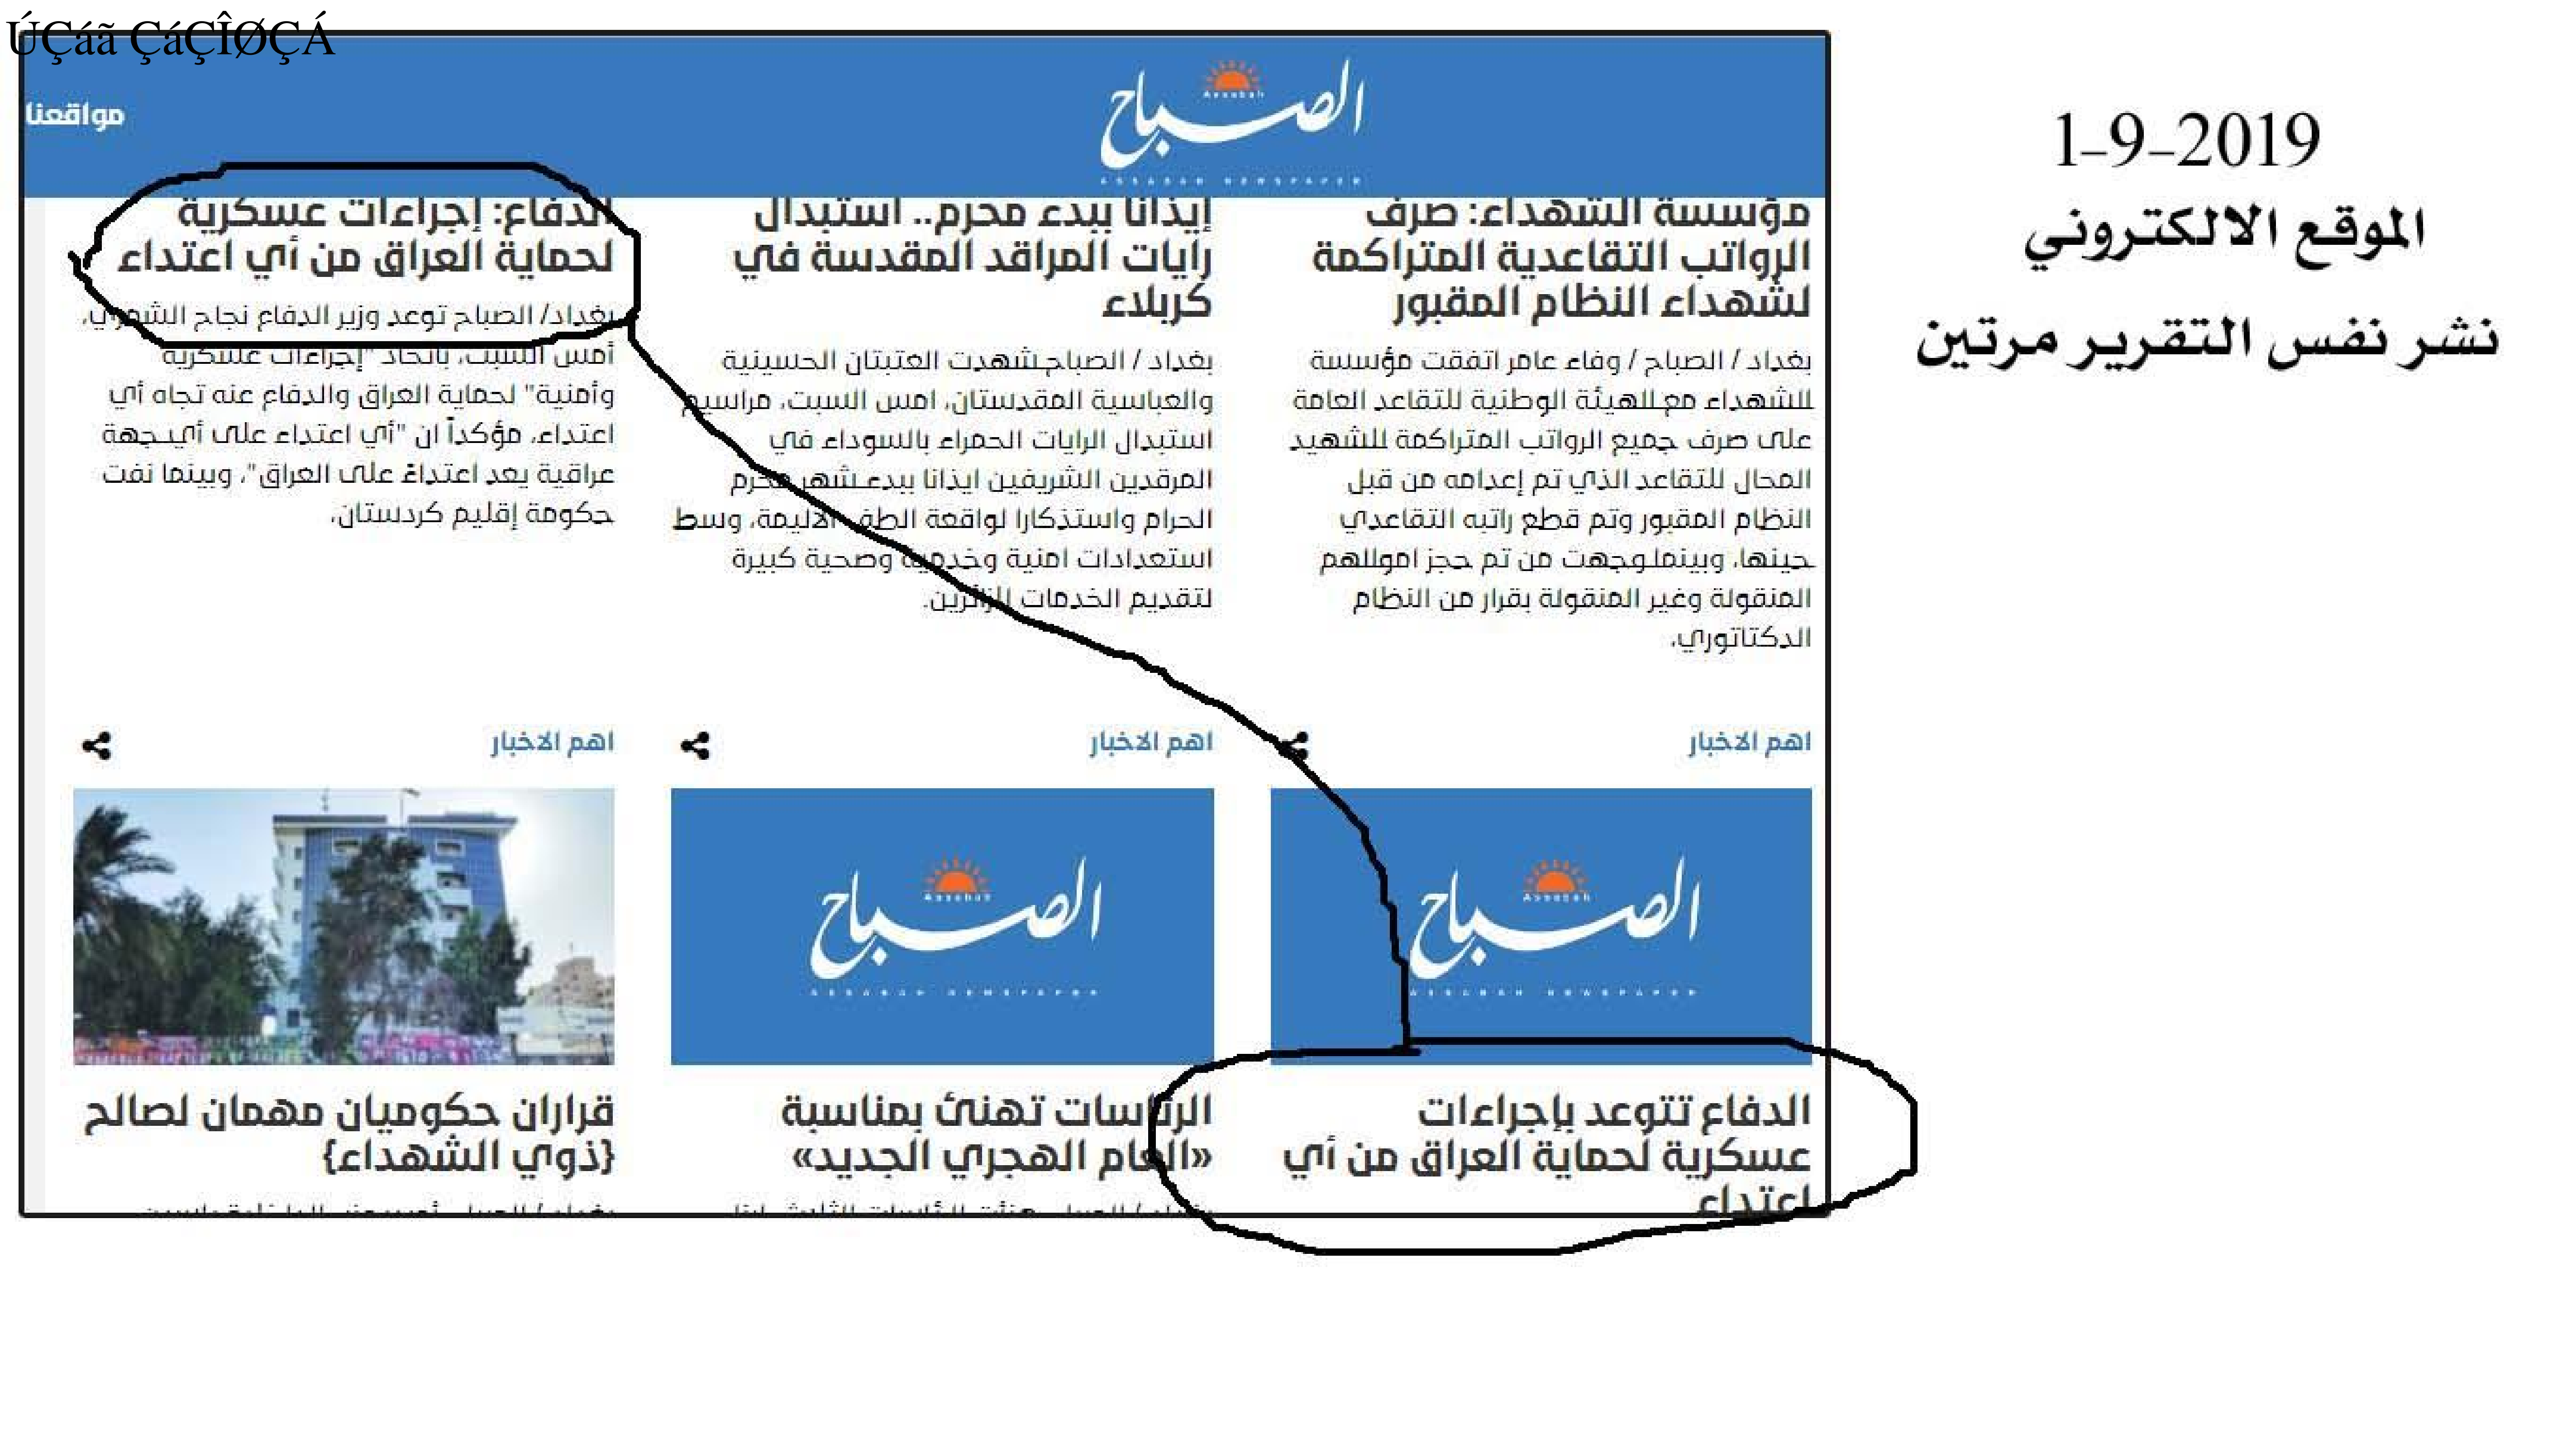 ÚÇáã ÇáÇÎØÇÁ
1-9-2019
الموقع الالكتروني
نشر نفس التقرير مرتين
مواقعنا
الصباح
Assabah
ASSABAH NEWSPAPER
مؤسسة الشهداء: صرف
الرواتب التقاعدية المتراكمة
لشهداء النظام المقبور
بغداد / الصباح / وفاء عامر اتفقت مؤسسة
الشهداء مع الهيئة الوطنية للتقاعد العامة
على صرف جميع الرواتب المتراكمة للشهيد
المحال للتقاعد الذي تم إعدامه من قبل
النظام المقبور وتم قطع راتبه التقاعدي
حينها، وبينما وجهت من تم حجز اموالهم
المنقولة وغير المنقولة بقرار من النظام
الدكتاتوري،
إيذانا ببدء محرم.. استبدال
رايات المراقد المقدسة في
كربلاء
بغداد / الصباح شهدت العتبتان الحسينية
والعباسية المقدستان، امس السبت، مراسيم
استبدال الرايات الحمراء بالسوداء في
المرقدين الشريفين ايذانا ببدء شهر محرم
الحرام واستذكارا لواقعة الطف الأليمة، وسط
استعدادات امنية وخدمية وصحية كبيرة
لتقديم الخدمات للزائرين.
الدفاع: إجراءات عسكرية
لحماية العراق من أي اعتداء
بغداد/ الصباح توعد وزير الدفاع نجاح الشمري،
أمس السبت، باتخاذ "إجراءات عسكرية
وأمنية" لحماية العراق والدفاع عنه تجاه أي
اعتداء، مؤكداً ان "أي اعتداء على أي جهة
عراقية يعد اعتداءً على العراق"، وبينما نفت
حكومة إقليم كردستان،
اهم الاخبار
اهم الاخبار
اهم الاخبار
الصباح
Assabah
ASSABAH NEWSPAPER
الصباح
Assabah
ASSABAH NEWSPAPER
الدفاع تتوعد بإجراءات
عسكرية لحماية العراق من أي
اعتداء
الرئاسات تهنئ بمناسبة
«العام الهجري الجديد»
قراران حكوميان مهمان لصالح
{ذوي الشهداء}